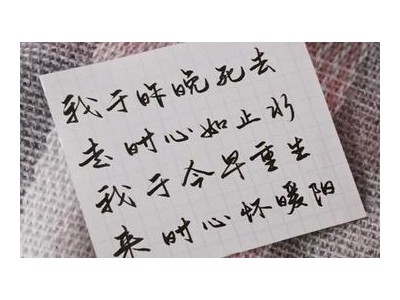 我于昨晚死去
走时心如止水
我于今早重生
来时心怀暖阳